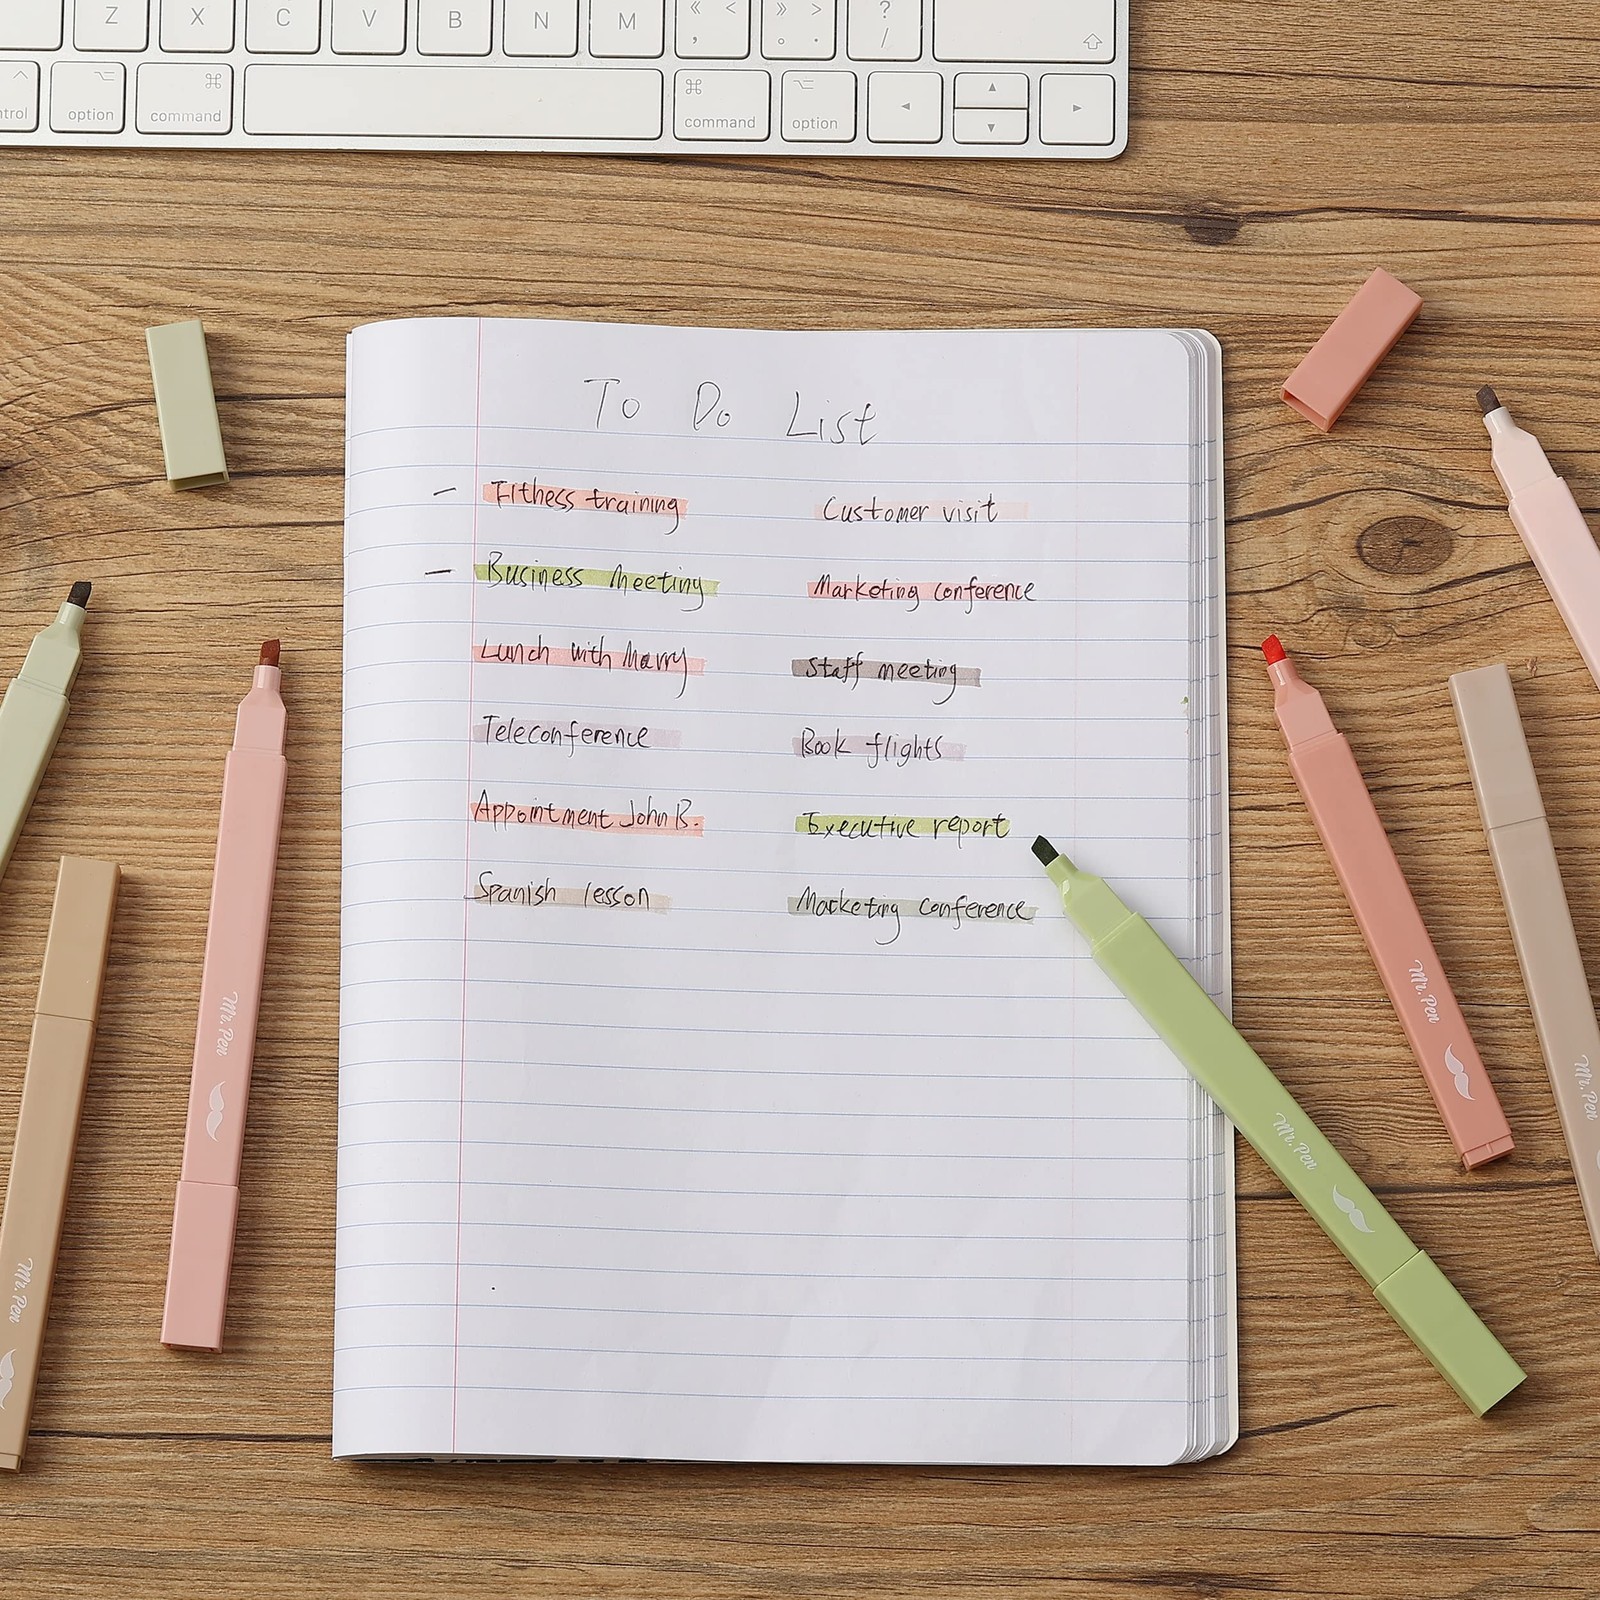 Z X C V B N M « < , » > . ? /
control option command command option
To Do List
- Fitness training Customer visit
- Business Meeting Marketing conference
Lunch with Marry Staff meeting
Teleconference Book flights
Appointment John B. Executive report
Spanish lesson Marketing conference
Mr. Pen
Mr. Pen
Mr. Pen
Mr. Pen
Mr. Pen